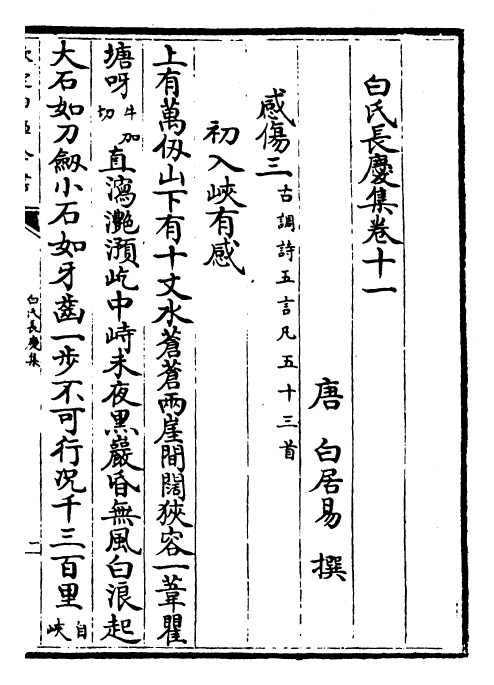 白氏長慶集卷十一
唐 白居易 撰
感傷三古調詩五言凡五十三首
初入峽有感
上有萬仞山下有十丈水蒼蒼兩崖間闊狹容一葦瞿
塘呀牛加切直瀉灔澦屹中峙未夜黒巖昏無風白浪起
大石如刀劔小石如牙齒一步不可行况千三百里自峽
白氏長慶集